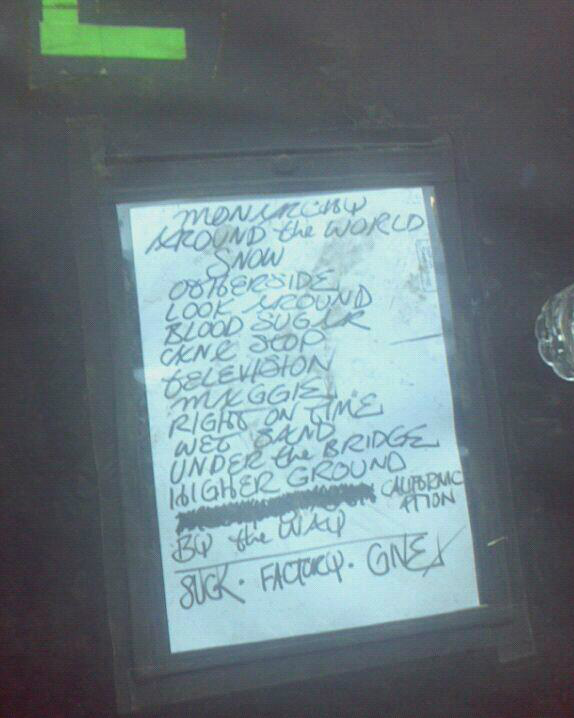 MONARCHY
AROUND the WORLD
SNOW
OTHERSIDE
LOOK AROUND
BLOOD SUGAR
CAN'T STOP
TELEVISION
MAGGIE
RIGHT ON TIME
WET SAND
UNDER the BRIDGE
HIGHER GROUND
CALIFORNIC
ATION
By the WAY
SUCK · FACTORY · GIVE